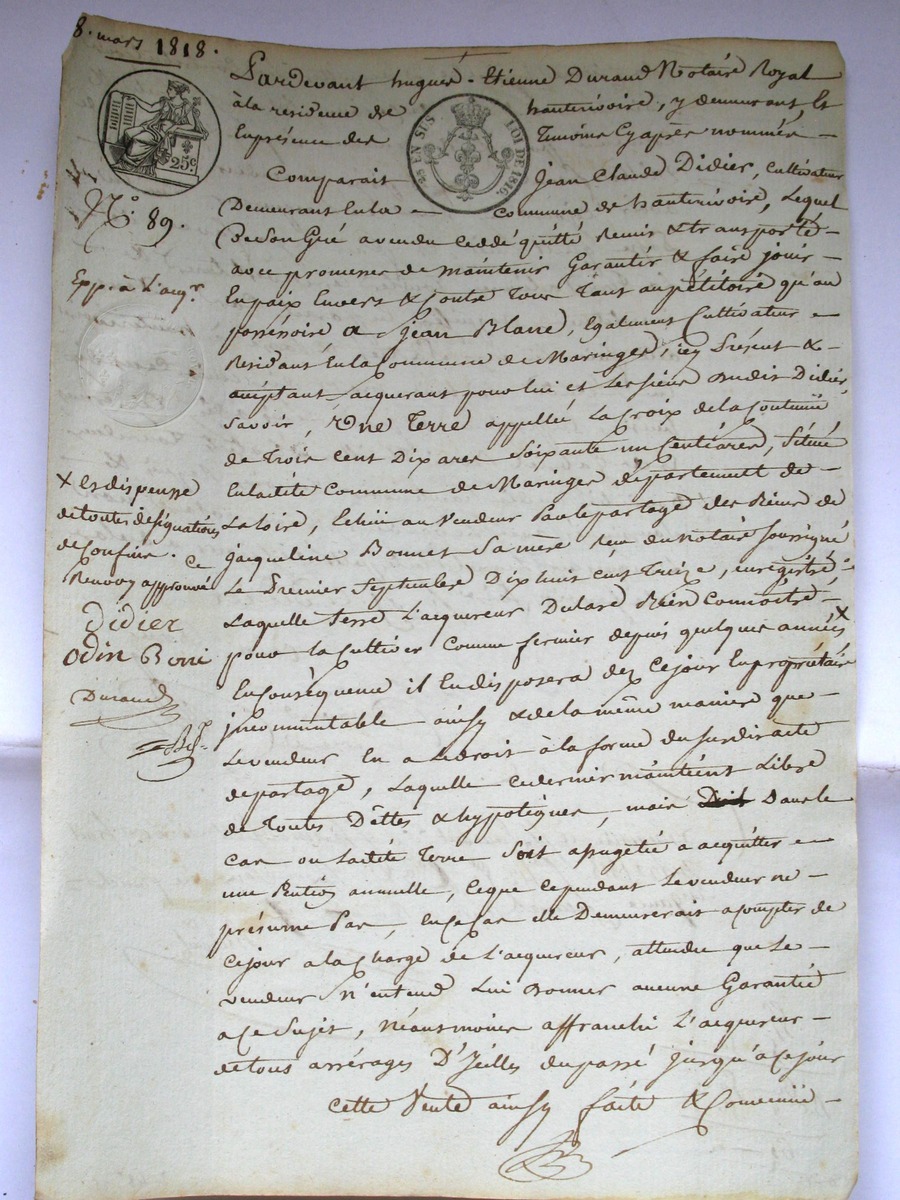 8. mars 1818.
Pardevant hugues-Etienne Durand Notaire Royal
à la residence de hauterivoire, y demeurant, Et
En présence des Temoins Cy après nommés —
25c.
25 EN SUS
LOI DE 1816.
Comparait Jean Claude Didier, Cultivateur
Demeurant En la — Commune de hauterivoire, Lequel
De son Gré a vendu ceddé quitté Remis & transporté —
avec promesse de maintenir Garantir & faire jouir
En paix Envers & Contre Tous Tant au pétitoire qu'au
possessoire a Jean Blanc, Egalement Cultivateur —
Residant En la Commune de Maringes, icy Présent &
acceptant acquerant pour lui et Les siens Dudit Didier,
Savoir, Une Terre appellée La Croix de la
de Trois Cent Dix ares Soixante un Centiares, Située
En la dite Commune de Maringes département de —
La Loire, Echüe au Vendeur Par le partage des Biens de
jacqueline Bonnet Sa mère Reçu du Notaire soussigné
Le Premier Septembre Dix huit cent Treize, enregistré;
Laquelle Terre L'acquereur Déclare Bien Connoitre —
pour la Cultiver Comme fermier depuis quelques années X
En Conséquence il En disposera dès Ce jour En propriétaire
jncommutable ainsy & de la même maniere que —
Le vendeur En a Le droit à la forme du susdit acte
de partage, Laquelle ce dernier maintient Libre
de Toutes Dettes & hypotèques, mais Dans le
Cas ou La dite Terre Soit assugétie a acquitter —
une Pention annuelle, Ce que Cependant Le vendeur ne —
présume Pas, En ce Cas elle Demeurerait a compter de
Ce jour a la Charge de L'acquereur, attendu que Le —
vendeur N'entend Lui Donner aucune Garantie
a Ce Sujet, Néantmoins affranchi L'acquereur —
de tous arrérages D'Jcelles du passé jusqu'à ce jour
Cette Vente ainsy faite & Convenüe —
N.° 89.
Exp. à L'acqr
X Et dispense
de toutes désignations
de Confins. Ce
Renvoy approuvé
didier
odin
Durand